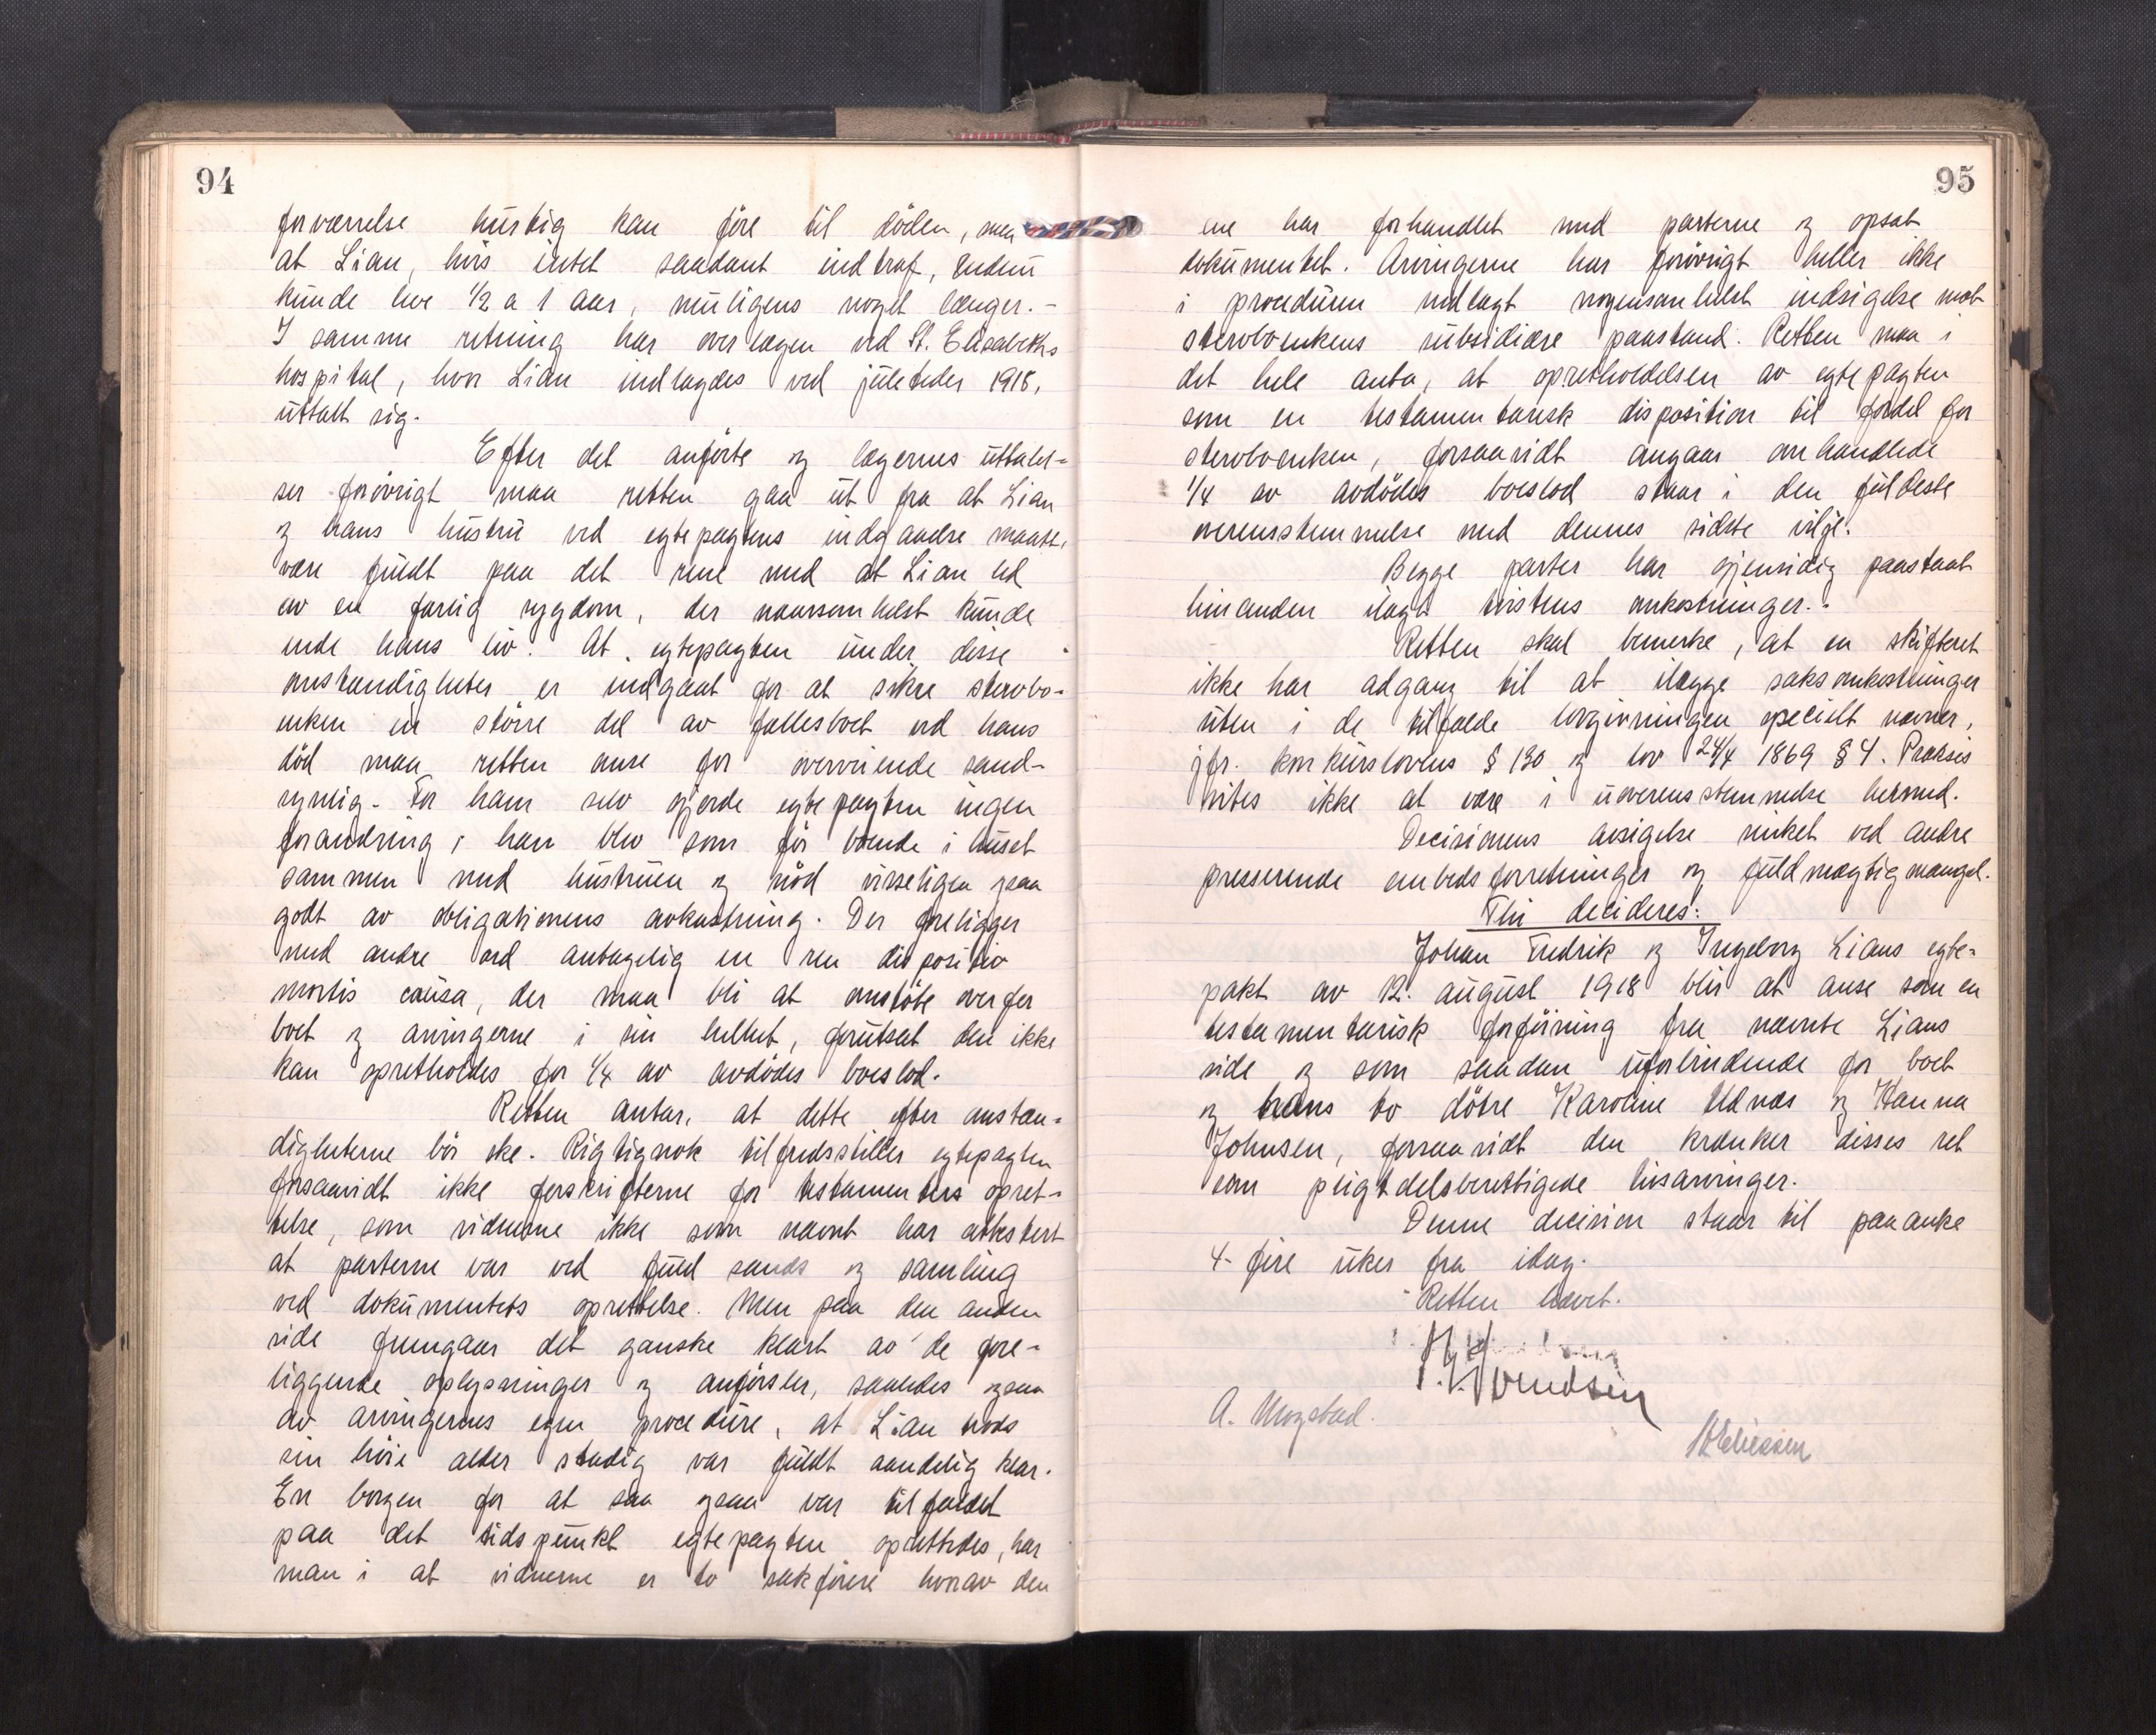 94
forværrelse hurtig kan føre til døden, men
at Lian, hvis intet saadant indtraf, endnu
kunde leve 1/2 a 1 aar, muligens noget længer. -
I samme retning har overlægen ved St. Elisabeths
hospital, hvor Lian indlagdes ved juletider 1918,
uttalt sig.
Efter det anførte og lægernes uttalel-
ser forøvrigt maa retten gaa ut fra at Lian
og hans hustru ved egtepagtens indgaaelse maatte
være fuldt paa det rene med at Lian led
av en farlig sygdom, der naarsomhelst kunde
ende hans liv. At egtepagten under disse
omstændigheter er indgaat for at sikre stervbo-
enken en større del av fællesboet ved hans
død maa retten anse for overveiende sand-
synlig. For ham selv gjorde egtepagten ingen
forandring; han blev som før boende i huset
sammen med hustruen og nød visseligen ogsaa
godt av obligationens avkastning. Der foreligger
med andre ord antagelig en ren dispositiv
mortis causa, der maa bli at omstøte overfor
boet og arvingerne i sin helhet, forutsat den ikke
kan opretholdes for 1/4 av avdødes boeslod.
Retten antar, at dette efter omstæn-
digheterne bør ske. Rigtignok tilfredsstiller egtepagten
forsaavidt ikke forskrifterne for testamenters opret-
telse, som vidnerne ikke som nævnt har attestert
at parterne var ved fuld sands og samling
ved dokumentets oprettelse. Men paa den anden
side fremgaar det ganske klart av de fore-
liggende oplysninger og anførsler, saaledes ogsaa
av arvingernes egen procedure, at Lian trods
sin høie alder stadig var fuldt aandelig klar.
En borgen for at saa ogsaa var tilfældet
paa det tidspunkt egtepagten oprettedes, har
man i at vidnerne er to sakførere hvorav den
95
ene har forhandlet med parterne og opsat
dokumentet. Arvingerne har forøvrigt heller ikke
i proceduren nedlagt nogensomhelst indsigelse mot
stervboenkens subsidiære paastand. Retten maa i
det hele anta, at opretholdelsen av egtepagten
som en testamentarisk disposition til fordel for
stervboenken, forsaavidt angaar omhandlede
1/4 av avdødes boeslod staar i den fuldeste
overensstemmelse med dennes sidste vilje.
Begge parter har gjensidig paastaat
hinanden ilagt tvistens omkostninger. -
Retten skal bemerke, at en skifteret
ikke har adgang til at ilægge saksomkostninger
uten i de tilfælde lovgivningen specielt nævner,
jfr. konkurslovens § 130 og lov 24/4 1869 § 4. Praksis
vites ikke at være i uoverensstemmelse hermed.
Decisionens avsigelse sinket ved andre
presserende embedsforretninger og fuldmægtigmangel.
Thi decideres:
Johan Fredrik og Ingeborg Lians egte-
pakt av 12. august 1918 blir at anse som en
testamentarisk forføining fra nævnte Lians
side og som saadan uforbindende for boet
og hans to døtre Karoline Udnæs og Hanna
Johnsen, forsaavidt den krænker disses ret
som pligtdelsberettigede livsarvinger.
Denne decision staar til paaanke
4 - fire uker fra idag.
Retten hævet.
A. Mogstad.